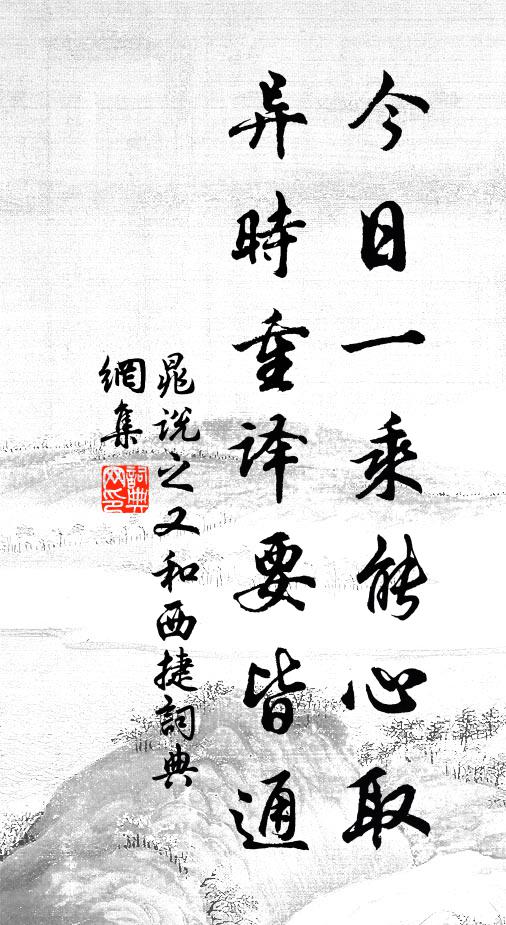 今日一乘能心取
异時重译要皆通
晁说之又和西捷詞典
網集
詞典网印